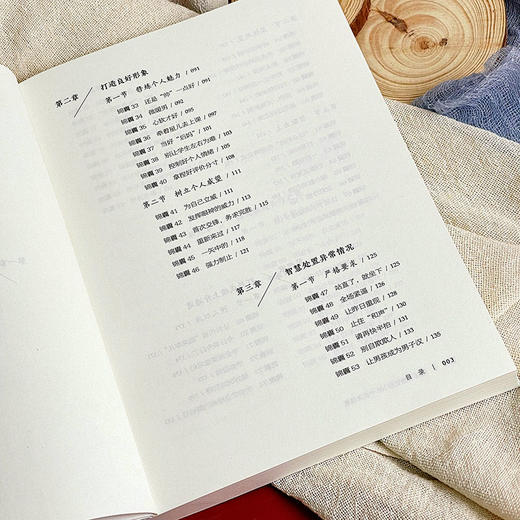 第二章 打造良好形象
第一节 修炼个人魅力 / 091
锦囊 33 还是“帅”一点好 / 091
锦囊 34 做暖男 / 092
锦囊 35 心软才好 / 095
锦囊 36 牵着星儿去上课 / 097
锦囊 37 当好“后妈” / 101
锦囊 38 别让学生左右为难 / 103
锦囊 39 控制好个人情绪 / 105
锦囊 40 掌控好评价分寸 / 108
第二节 树立个人威望 / 111
锦囊 41 为自己立威 / 111
锦囊 42 发挥眼神的威力 / 113
锦囊 43 首次交锋，务求完胜 / 115
锦囊 44 重新来过 / 117
锦囊 45 一矢中的 / 118
锦囊 46 强力制止 / 121
第三章 智慧处置异常情况
第一节 严格要求 / 125
锦囊 47 站直了，就坐下 / 125
锦囊 48 全场紧逼 / 126
锦囊 49 让昨日重现 / 128
锦囊 50 止住“和声” / 130
锦囊 51 请再快半拍 / 131
锦囊 52 别自欺欺人 / 133
锦囊 53 让男孩成为男子汉 / 135
目录 | 003